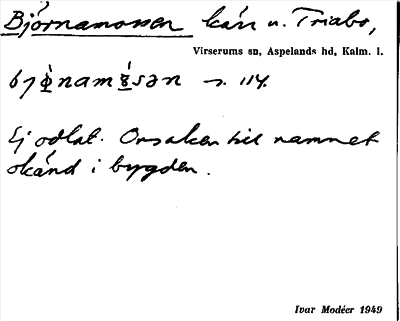 Björnamossen kärr u. Triabo,
Virserums sn, Aspelands hd, Kalm. l.
s. 114.
Ej odlat. Orsaken till namnet
okänd i bygden.
Ivar Modéer 1949